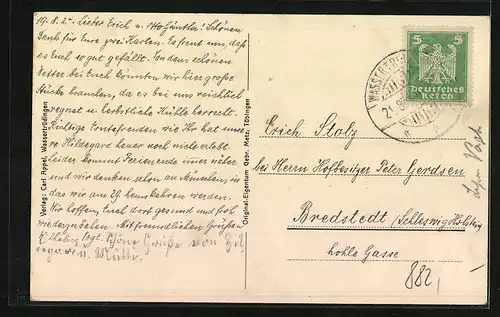 19.8.25. Lieber Erich u. Otto Günther! Schönen
Dank für Eure zwei Karten. Es freut uns, daß
es Euch so gut gefällt. Von dem schönen
Wetter bei Euch könnten wir hier große
Stücke brauchen, da es bei uns reichlich
regnet u. herbstliche Kühle herrscht.
Richtige Erntefreuden wie Ihr hat unsere
Hildegard heuer noch nicht erlebt.
Leider kommt Ferienende immer näher
und wir denken schon an
das wir am 29. heimkehren werden.
Wir hoffen, Euch dort gesund und froh
wiederzusehen. Mit freundlichen Grüßen
Schöne Grüße von
u. Mutter.
Verlag: Carl Appel, Wassertrüdingen
Original-Eigentum Gebr. Metz, Tübingen
5 5
Deutsches
Reich
WASSERTRÜ
Erich Stolz
bei Herrn Hofbesitzer Peter Gerdsen
Bredstedt (Schleswig Holstein)
hohle Gasse
882,